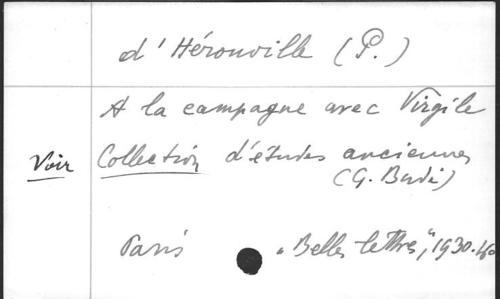 d'Hérouville (P.)
A la campagne avec Virgile
Voir Collection d'études anciennes
(G. Budé)
Paris „Belles lettres”, 1930. 4o